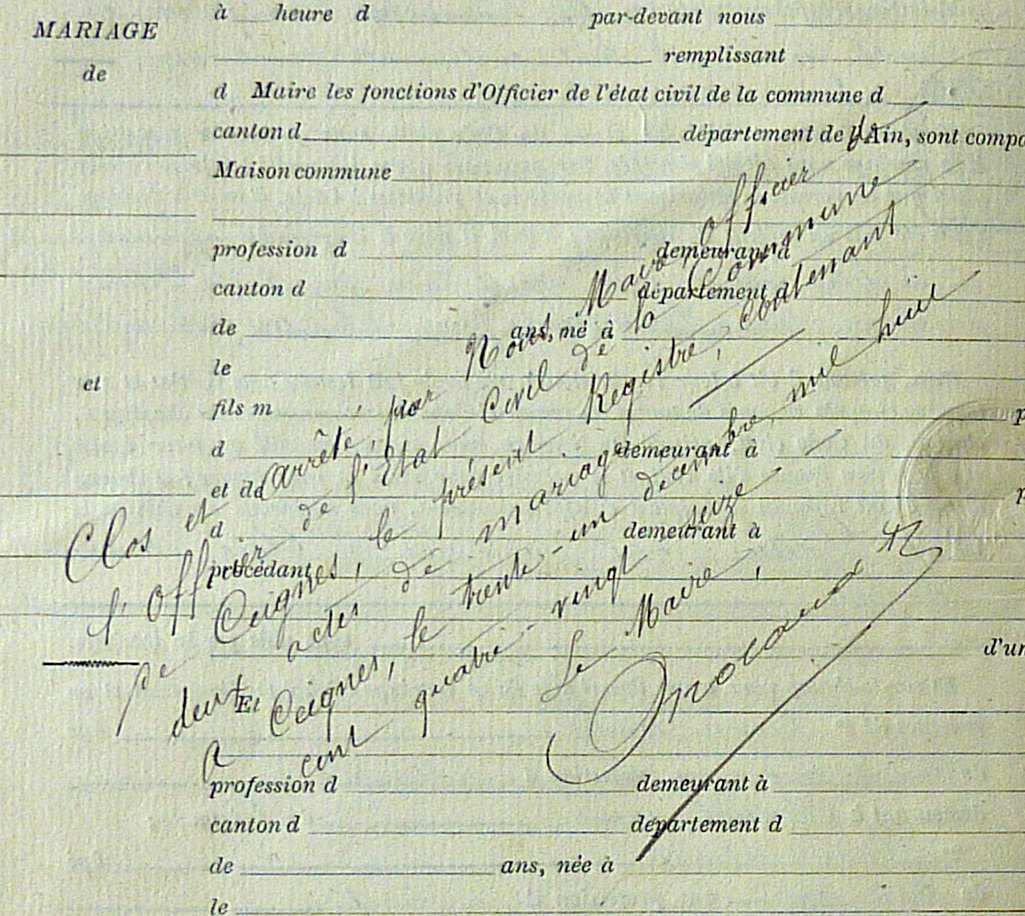 MARIAGE
de
et
à heure d par-devant nous
remplissant
d Maire les fonctions d'Officier de l'état civil de la commune d
canton d département de l'Ain, sont compa
Maison commune
profession d demeurant à
canton d département d
de ans, né à
le
fils m p
d demeurant à
et de p
d demeurant à
procédant
d'un
Et
profession d demeurant à
canton d département d
de ans, née à
le
Clos et arrêté, par Nous, Maire, officier
l'Officier de l'Etat Civil de la Commune
de Ceignes, le présent Registre, contenant
deux actes de mariage
A Ceignes, le trente-un décembre, mil huit
cent quatre-vingt seize
Le Maire,